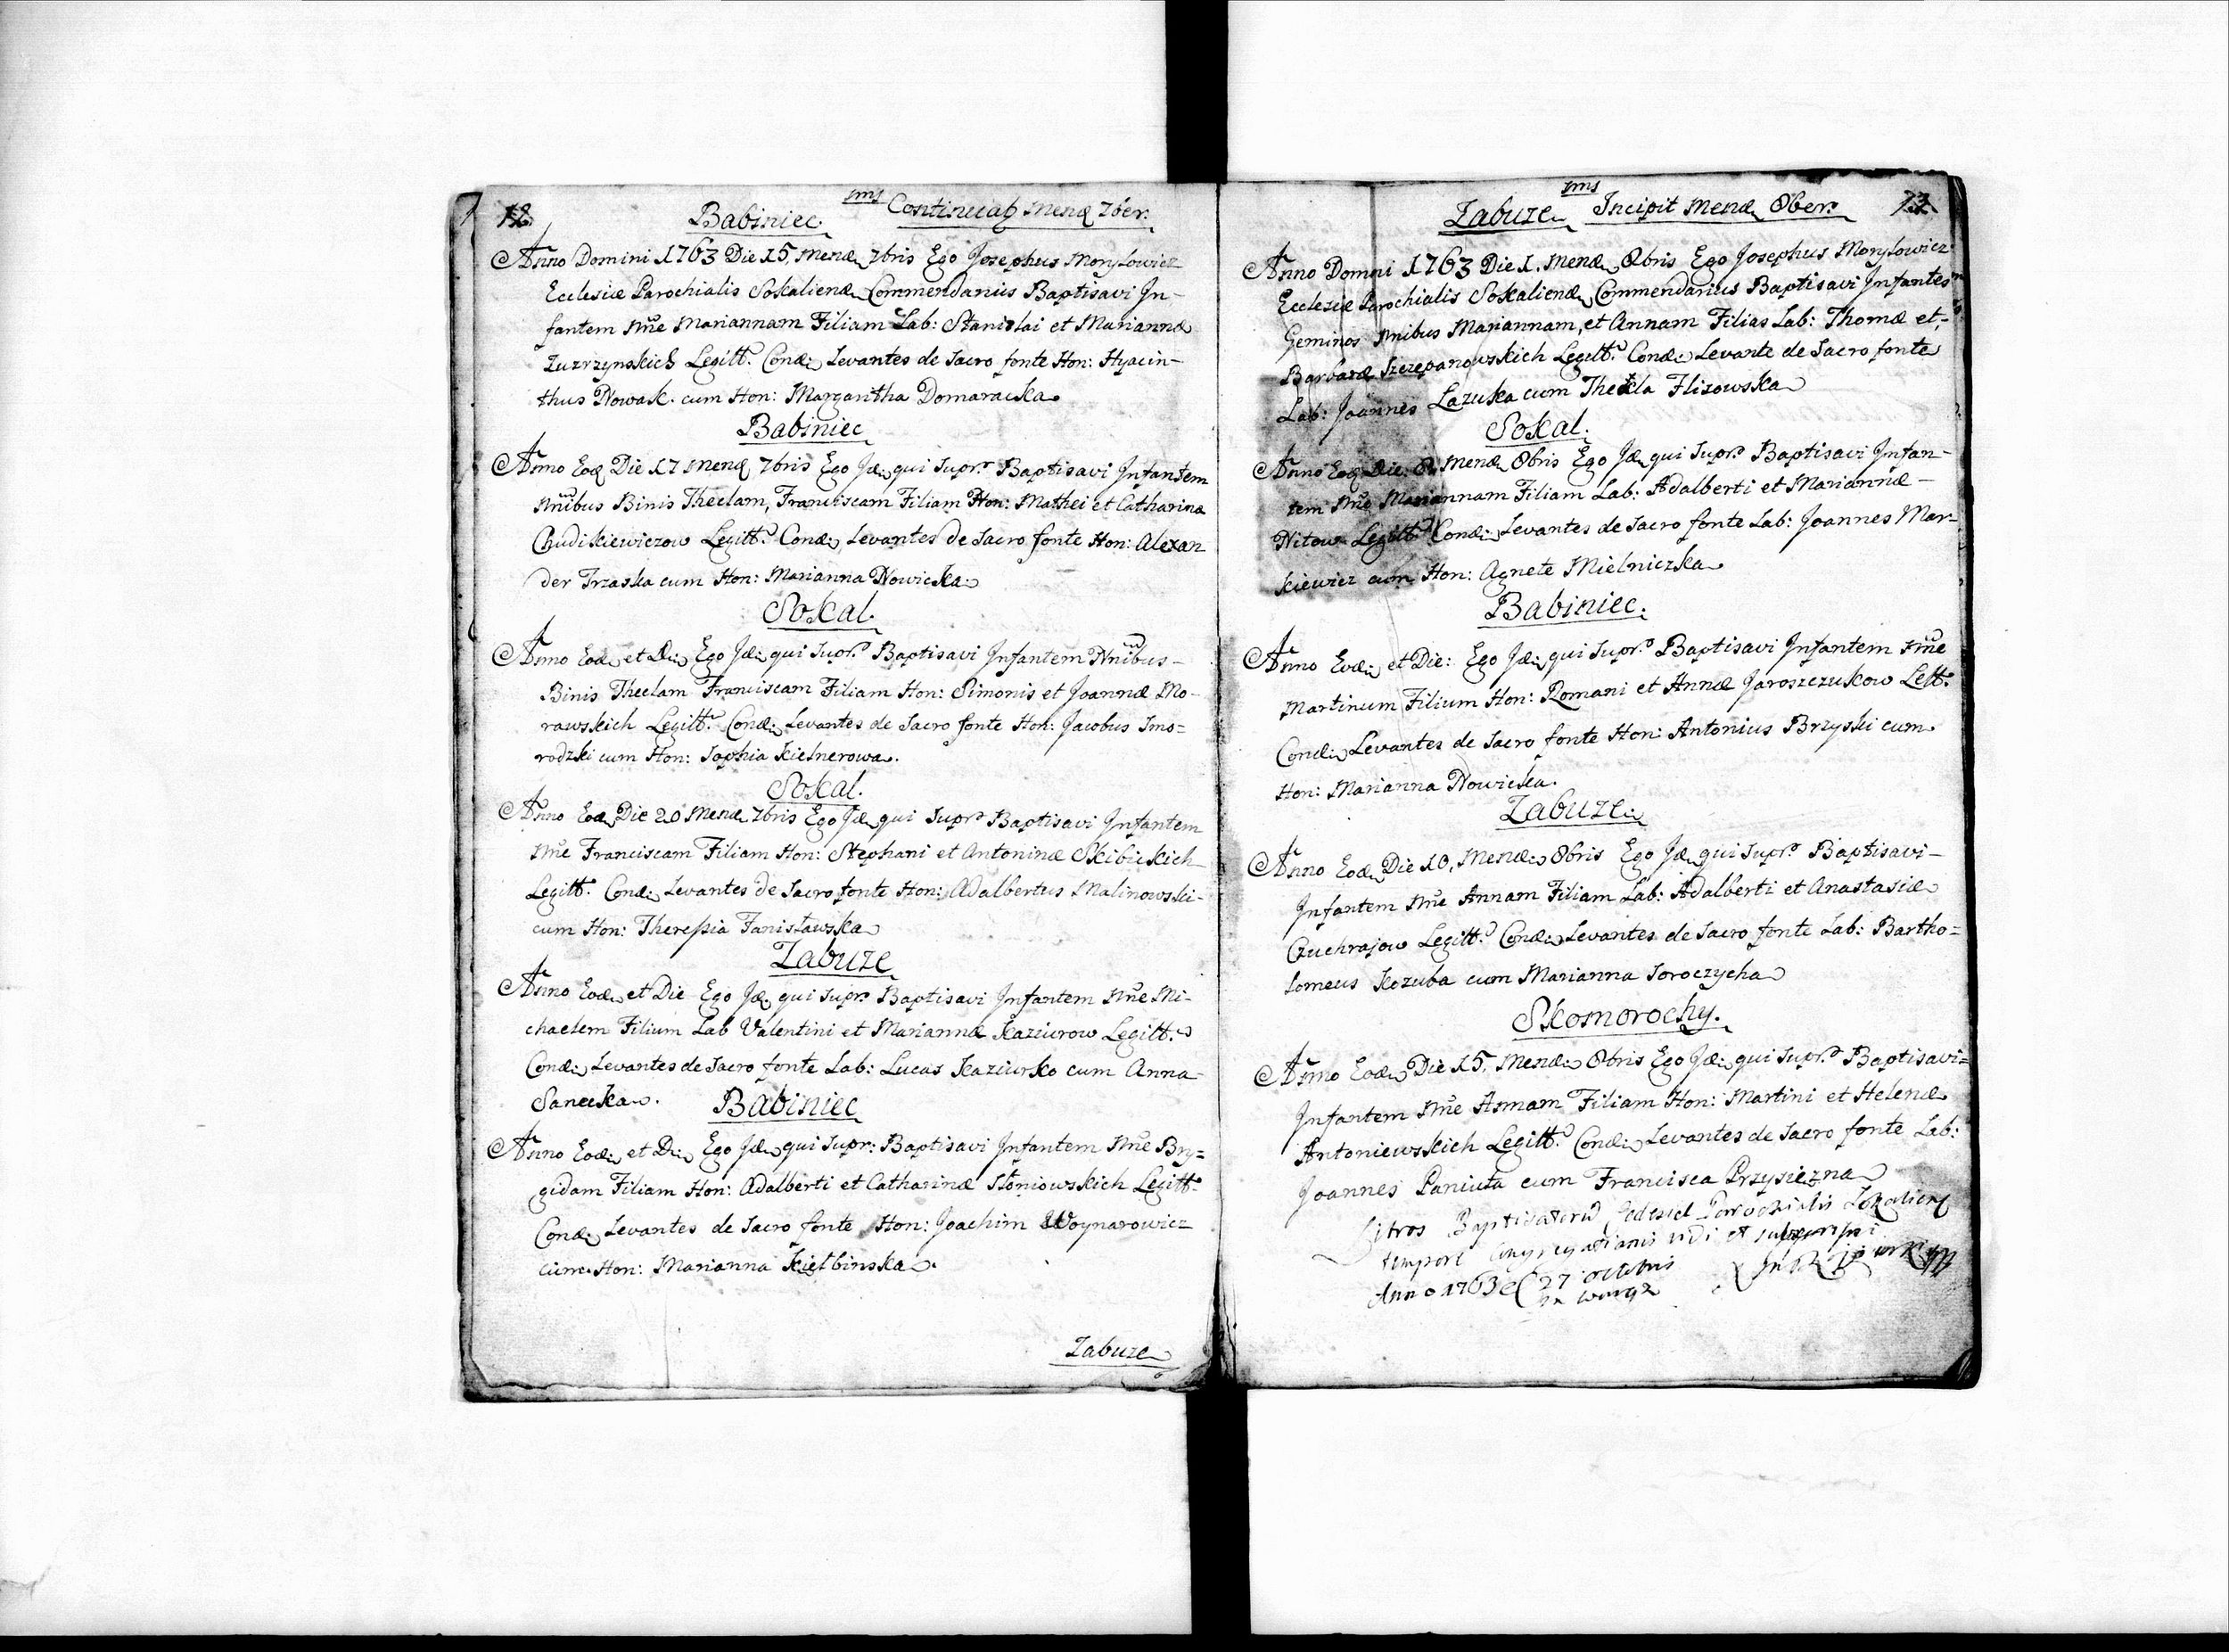 12.
Babiniec. Continuat Mens 7ber:
Anno Domini 1763 Die 15 Mens 7bris Ego Josephus Morylowicz
Ecclesiæ Parochialis Sokaliens Commendarius Baptisavi In-
fantem Nne Mariannam Filiam Lab: Stanislai et Mariannæ
Zuzrzynskich Legitt: Cond: Levantes de Sacro fonte Hon: Hyacin-
thus Nowak. cum Hon: Margaritha Domaracka
Babiniec
Anno Eod Die 17 Mens 7bris Ego Id qui Supr: Baptisavi Infantem
Nnibus Binis Theclam, Franciscam Filiam Hon: Mathei et Catharinæ
Chudikiewiczow Legitt: Cond: Levantes de Sacro fonte Hon: Alexan
der Trzaska cum Hon: Marianna Nowicka
Sokal.
Anno Eod: et Di: Ego Id: qui Supr: Baptisavi Infantem Nnibus-
Binis Theclam Franciscam Filiam Hon: Simonis et Joannæ Mo-
rawskich Legitt: Cond: Levantes de Sacro fonte Hon: Jacobus Smo=
rodzki cum Hon: Sophia Kielnerowa.
Sokal.
Anno Eod Die 20 Mens 7bris Ego Id qui Supr: Baptisavi Infantem
Nne Franciscam Filiam Hon: Stephani et Antoninæ Skibickich
Legitt: Cond: Levantes de Sacro fonte Hon: Adalbertus Malinowski-
cum Hon: Theressia Fanisławska
Zabuze
Anno Eod: et Die Ego Id: qui Supr: Baptisavi Infantem Nne Mi-
chaelem Filium Lab Valentini et Mariannæ Kaziurow Legitt:
Cond: Levantes de Sacro fonte Lab: Lucas Kaziurko cum Anna
Sanecka.
Babiniec
Anno Eod: et Di: Ego Id: qui Supr: Baptisavi Infantem Nne Bry=
gidam Filiam Hon: Adalberti et Catharinæ Słoniowskich Legitt:
Cond: Levantes de Sacro fonte Hon: Joachim Woynarowicz
cum Hon: Marianna Kiełbinska.
Zabuze
Zabuze Incipit Mens 8ber: 13.
Anno Domini 1763 Die 1. Mens 8bris Ego Josephus Morylowicz
Ecclesiæ Parochialis Sokaliens Commendarius Baptisavi Infantes
Geminos Nnibus Mariannam, et Annam Filias Lab: Thomæ et
Barbaræ Szczepanowskich Legitt: Cond: Levante de Sacro fonte
Lab: Joannes Lazuka cum Thekla Flisowska
Sokal.
Anno Eod Die Mens 8bris Ego Id qui Supr: Baptisavi Infan-
tem Nne Mariannam Filiam Lab: Adalberti et Mariannæ -
Nitow Legitt: Cond: Levantes de Sacro fonte Lab: Joannes Mar-
kiewicz cum Hon: Agnete Mielniczka
Babiniec.
Anno Eod: et Die: Ego Id: qui Supr: Baptisavi Infantem Nne
Martinum Filium Hon: Romani et Annæ Jaroszczukow Legtt:
Cond: Levantes de Sacro fonte Hon: Antonius Brzyski cum
Hon: Marianna Nowicka.
Zabuze
Anno Eod: Die 10, Mens 8bris Ego Id: qui Supr: Baptisavi-
Infantem Nne Annam Filiam Lab: Adalberti et Anastasiæ
Czuchrajow Legitt: Cond: Levantes de Sacro fonte Lab: Bartho=
lomeus Kozuba cum Marianna Soroczycha
Skomorochy.
Anno Eod: Die 15, Mens 8bris Ego Id: qui Supr: Baptisavi=
Infantem Nne Annam Filiam Hon: Martini et Helenæ
Antoniewskich Legitt: Cond: Levantes de Sacro fonte Lab:
Joannes Paniuta cum Francisca Przysiezna
Baptisatorū Parochialis
tempore Congregationis vidi et subscripsi
Anno 1763 27 octobris